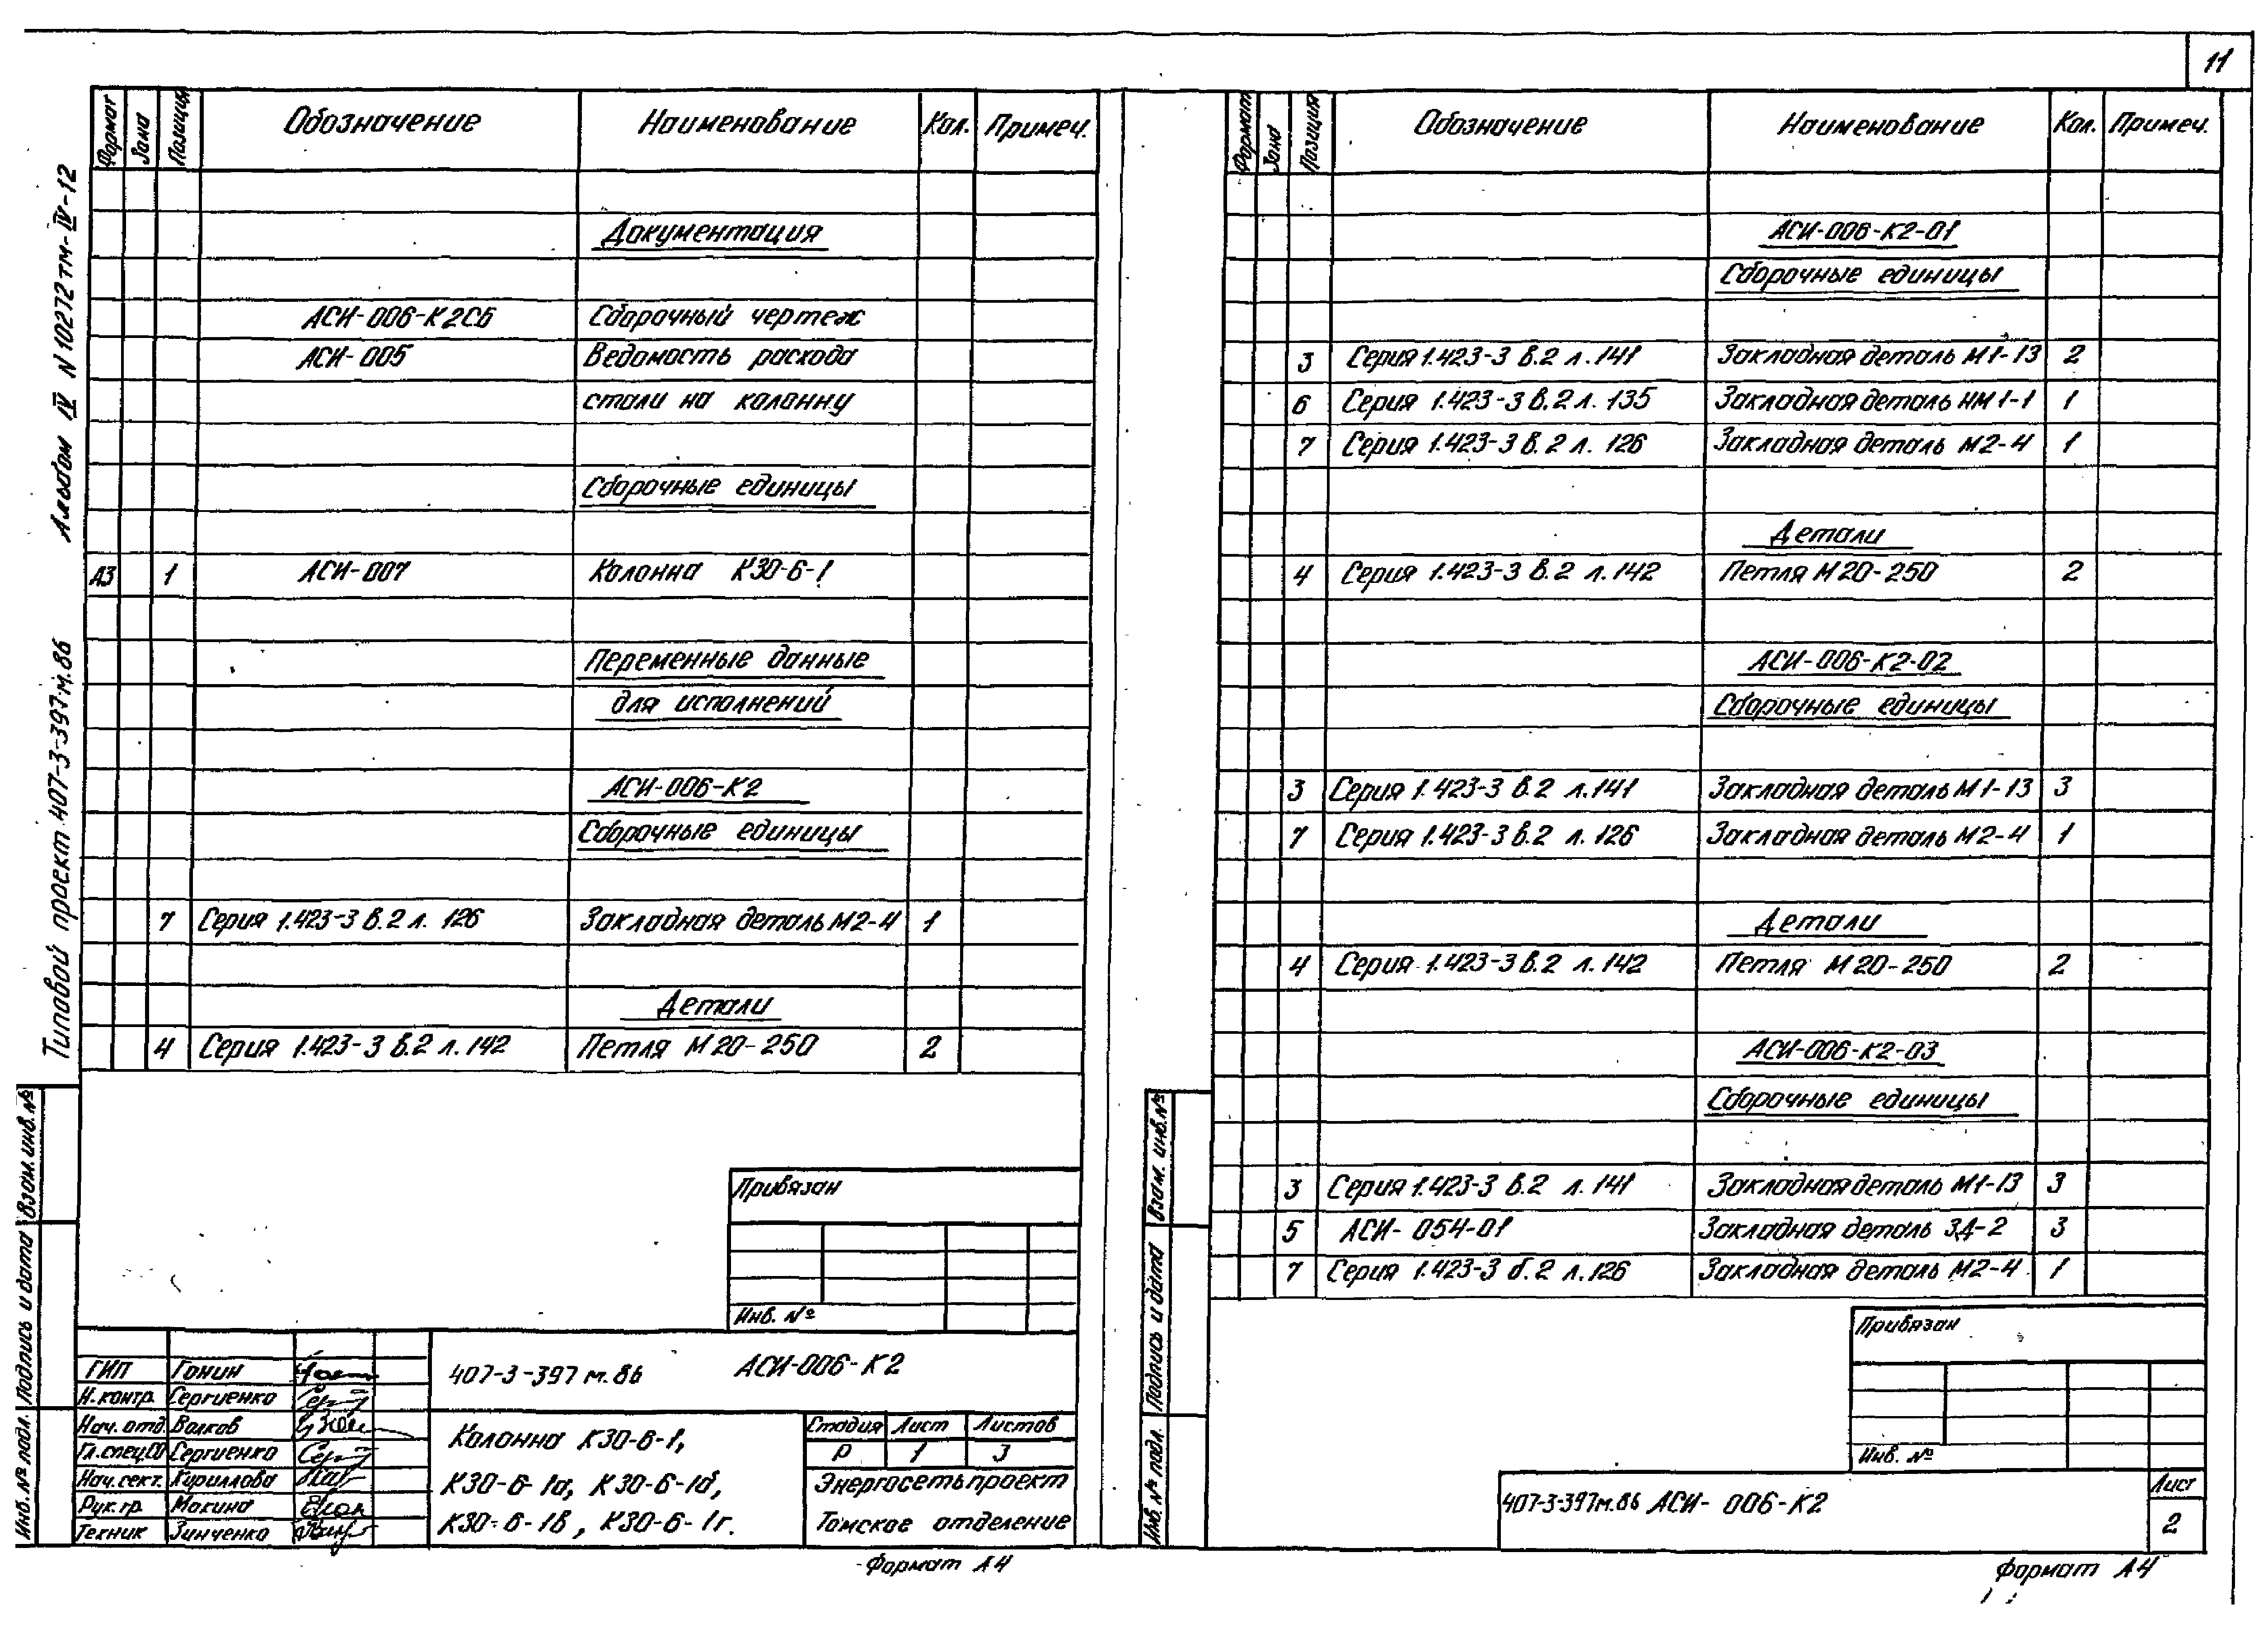 11
Типовой проект 407-3-397м.86 Альбом IV N 10272тм-IV-12
Формат Зона Позиция Обозначение Наименование Кол. Примеч.
Документация
АСИ-006-К2СБ Сборочный чертеж
АСИ-005 Ведомость расхода
стали на колонну
Сборочные единицы
А3 1 АСИ-007 Колонна К30-6-1
Переменные данные
для исполнений
АСИ-006-К2
Сборочные единицы
7 Серия 1.423-3 в.2 л. 126 Закладная деталь М2-4 1
Детали
4 Серия 1.423-3 в.2 л.142 Петля М20-250 2
Привязан
Инв. №
Инв. № подл. Подпись и дата Взам. инв. №
ГИП Гонин
Н.контр. Сергиенко
Нач. отд. Волков
Гл.спец.СО Сергиенко
Нач.сект. Кириллова
Рук.гр. Мокина
Техник Зинченко
407-3-397м.86 АСИ-006-К2
Колонна К30-6-1,
К30-6-1а, К30-6-1б,
К30-6-1в, К30-6-1г.
Стадия Лист Листов
Р 1 3
Энергосетьпроект
Томское отделение
Формат А4
Формат Зона Позиция Обозначение Наименование Кол. Примеч.
АСИ-006-К2-01
Сборочные единицы
3 Серия 1.423-3 в.2 л.141 Закладная деталь М1-13 2
6 Серия 1.423-3 в.2 л. 135 Закладная деталь НМ1-1 1
7 Серия 1.423-3 в.2 л. 126 Закладная деталь М2-4 1
Детали
4 Серия 1.423-3 в.2 л.142 Петля М20-250 2
АСИ-006-К2-02
Сборочные единицы
3 Серия 1.423-3 в.2 л.141 Закладная деталь М1-13 3
7 Серия 1.423-3 в.2 л.126 Закладная деталь М2-4 1
Детали
4 Серия 1.423-3 в.2 л.142 Петля М20-250 2
АСИ-006-К2-03
Сборочные единицы
3 Серия 1.423-3 в.2 л.141 Закладная деталь М1-13 3
5 АСИ-054-01 Закладная деталь ЗД-2 3
7 Серия 1.423-3 в.2 л.126 Закладная деталь М2-4 1
Привязан
Инв. №
Инв. № подл. Подпись и дата Взам. инв. №
407-3-397м.86 АСИ-006-К2
Лист
2
Формат А4